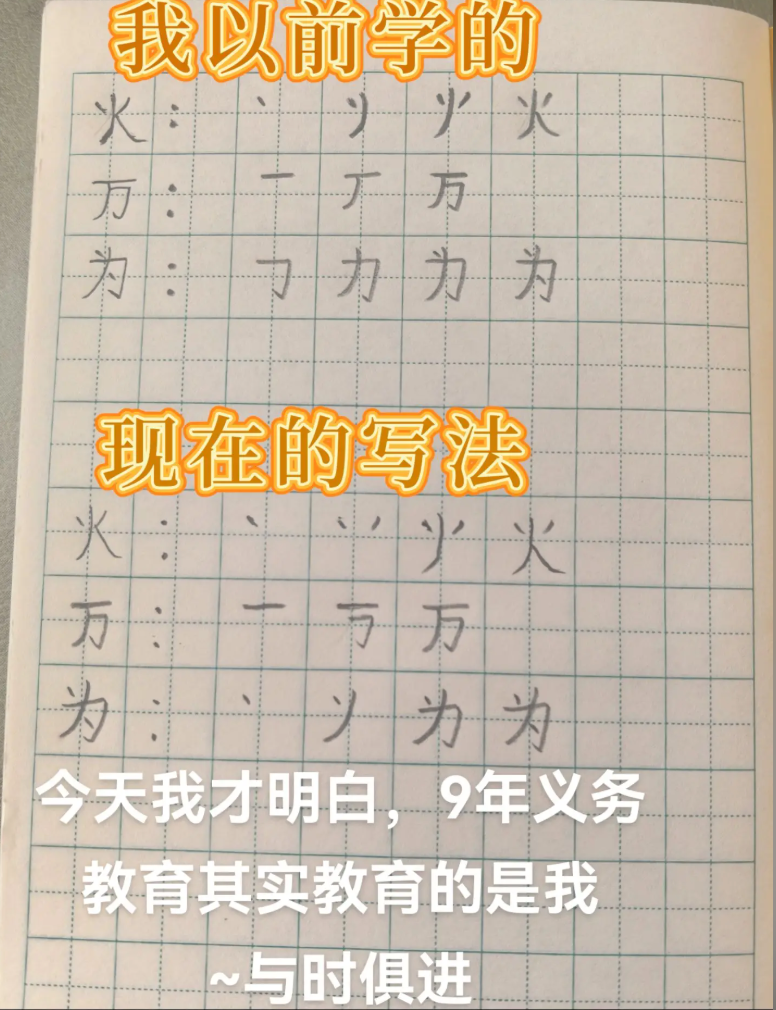 我以前学的
火：丶 火
万：一 丆 万
为：㇆ 力 为
现在的写法
火：丶 丷 火
万：一 丂 万
为：丶 为
今天我才明白，9年义务
教育其实教育的是我
~与时俱进